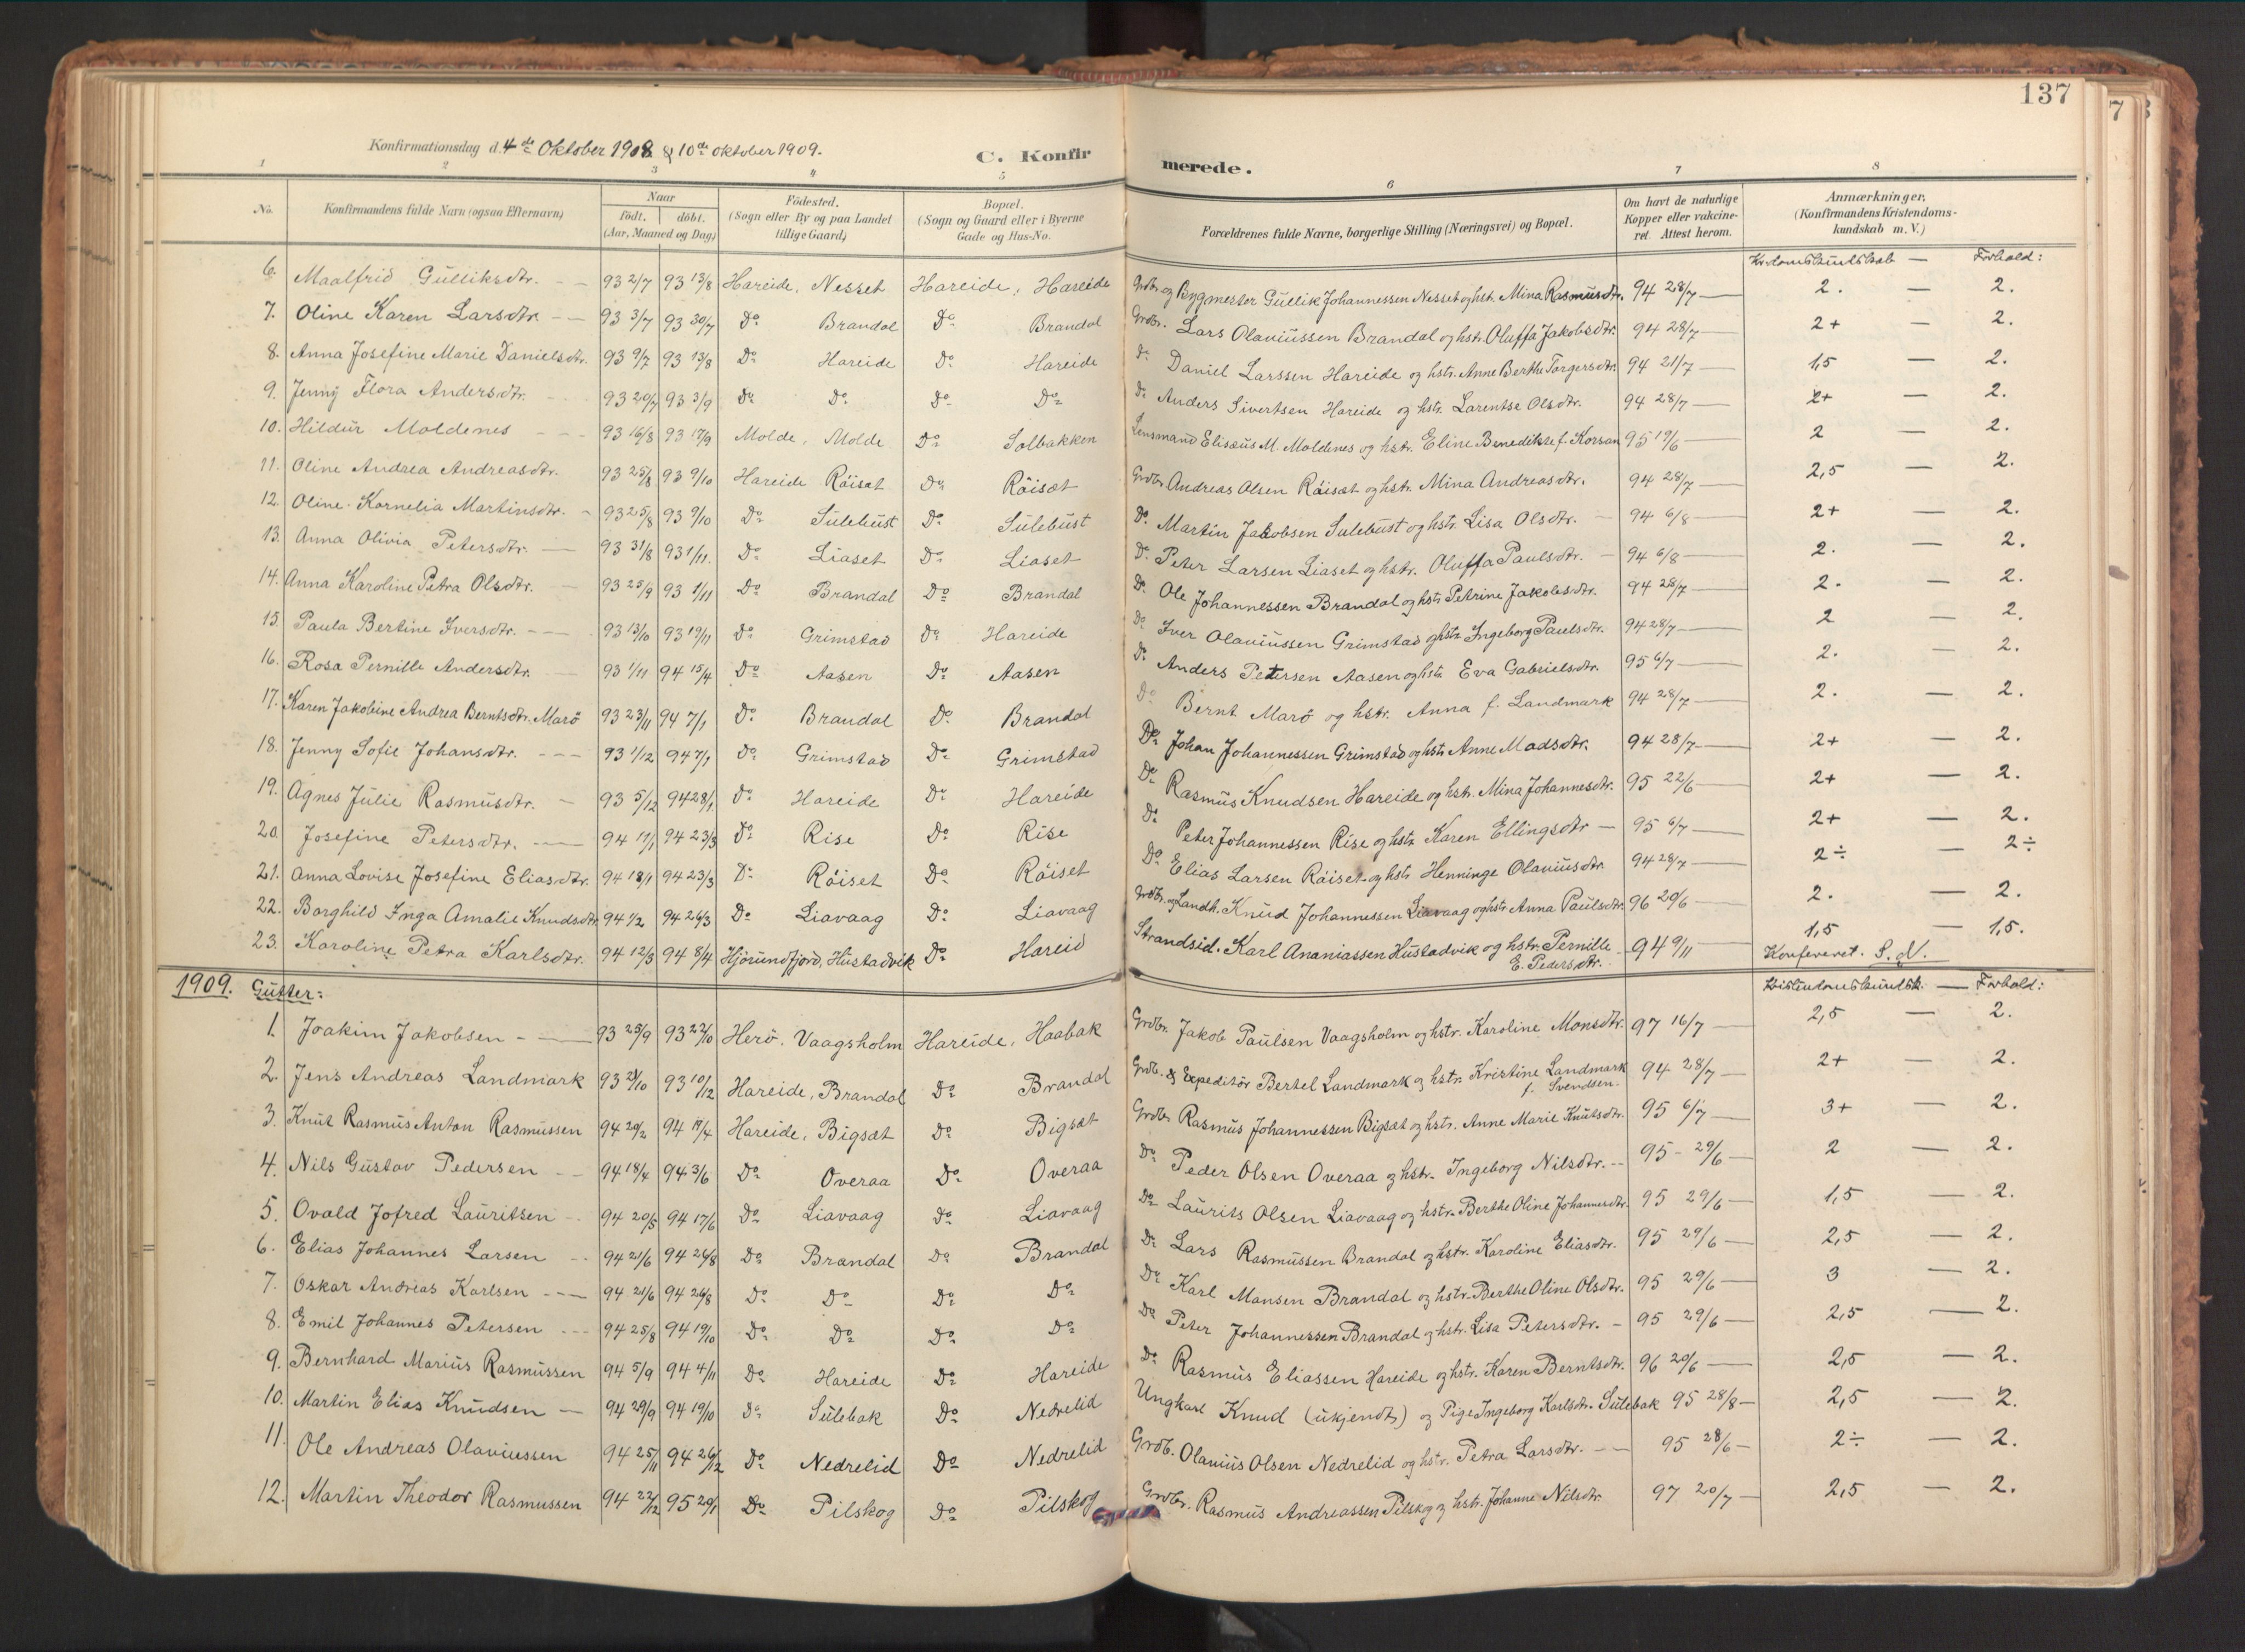 137
Konfirmationsdag d. 4de Oktober 1908 & 10de oktober 1909.
C. Konfirmerede.
1 2 3 4 5 6 7 8
No. Konfirmandens fulde Navn (ogsaa Efternavn) Naar født. døbt. (Aar, Maaned og Dag) Födested. (Sogn eller By og paa Landet tillige Gaard) Bopæl. (Sogn og Gaard eller i Byerne Gade og Hus-No. Forældrenes fulde Navne, borgerlige Stilling (Næringsvei) og Bopæl. Om havt de naturlige Kopper eller vakcineret. Attest herom. Anmærkninger. (Konfirmandens Kristendomskundskab m. V.)
Kr.domskundskab — Forhold:
6. Maalfrid Gulliksdtr. 93 2/7 93 13/8 Hareide, Nesset Hareide, Hareide Grdbr. og Bygmester Gullik Johannessen Nesset og hstr. Mina Rasmusdtr. 94 28/7 2. — 2.
7. Oline Karen Larsdtr. 93 3/7 93 30/7 Do Brandal Do Brandal Grdbr. Lars Olaviussen Brandal og hstr. Oluffa Jakobsdtr. 94 28/7 2+ — 2.
8. Anna Josefine Marie Danielsdtr. 93 9/7 93 13/8 Do Hareide Do Hareide Do Daniel Larssen Hareide og hstr. Anne Berthe Torgersdtr. 94 21/7 1,5 — 2.
9. Jenny Flora Andersdtr. 93 20/7 93 3/9 Do Do Do Do Do Anders Sivertsen Hareide og hstr. Larentse Olsdtr. 94 28/7 2+ — 2.
10. Hildur Moldenes 93 16/8 93 17/9 Molde, Molde Do Solbakken Lensmand Elisæus M. Moldenes og hstr. Eline Benedikte f. Korsan 95 19/6 2 — 2.
11. Oline Andrea Andreasdtr. 93 25/8 93 9/10 Hareide Röisæt Do Röisæt Grdbr. Andreas Olsen Röisæt og hstr. Mina Andreasdtr. 94 28/7 2,5 — 2.
12. Oline Kornelia Martinsdtr. 93 25/8 93 9/10 Do Sulebust Do Sulebust Do Martin Jakobsen Sulebust og hstr. Lisa Olsdtr. 94 6/8 2+ — 2.
13. Anna Olivia Petersdtr. 93 31/8 93 1/11. Do Liaset Do Liaset Do Peter Larsen Liaset og hstr. Oluffa Paulsdtr. 94 6/8 2. — 2.
14. Anna Karoline Petra Olsdtr. 93 25/9 93 1/11 Do Brandal Do Brandal Do Ole Johannessen Brandal og hstr. Petrine Jakobsdtr. 94 28/7 2. — 2.
15. Paula Bertine Iversdtr. 93 13/10 93 19/11 Do Grimstad Do Hareide Do Iver Olaviussen Grimstad og hstr. Ingeborg Paulsdtr. 94 28/7 2 — 2.
16. Rosa Pernille Andersdtr. 93 1/11 94 15/4 Do Aasen Do Aasen Do Anders Petersen Aasen og hstr. Eva Gabrielsdtr. 95 6/7 2. — 2.
17. Karen Jakobine Andrea Berntsdtr. Marö 93 23/11 94 7/1 Do Brandal Do Brandal Do Bernt Marö og hstr. Anna f. Landmark 94 28/7 2. — 2.
18. Jenny Sofie Johansdtr. 93 1/12 94 7/1 Do Grimstad Do Grimstad Do Johan Johannessen Grimstad og hstr. Anne Madsdtr. 94 28/7 2+ — 2.
19. Agnes Julie Rasmusdtr. 93 5/12 94 28/1 Do Hareide Do Hareide Do Rasmus Knudsen Hareide og hstr. Mina Johannesdtr. 95 22/6 2+ — 2.
20. Josefine Petersdtr. 94 11/1 94 23/3 Do Rise Do Rise Do Peter Johannessen Rise og hstr. Karen Ellingsdtr 95 6/7 2+ — 2.
21. Anna Lovise Josefine Eliasdtr. 94 18/1 94 23/3 Do Röiset Do Röiset Do Elias Larsen Röiset og hstr. Henninge Olaviusdtr. 94 28/7 2÷ — 2÷
22. Borghild Inga Amalie Knudsdtr. 94 1/2 94 26/3 Do Liavaag Do Liavaag Grdbr. og Landh. Knud Johannessen Liavaag og hstr. Anna Paulsdtr. 96 20/6 2. — 2.
23. Karoline Petra Karlsdtr. 94 12/3 94 8/4 Hjørundfjord, Hustadvik Do Hareid Strandsid. Karl Ananiassen Hustadvik og hstr. Pernille E. Pedersdtr. 94 9/11 1,5 — 1,5.
Konfereret. S.N.
1909. Gutter: Kristendomskundsk. — Forhold:
1. Joakim Jakobsen 93 25/9 93 22/10 Herö, Vaagsholm Hareide, Haabak Grdbr. Jakob Paulsen Vaagsholm og hstr. Karoline Monsdtr. 97 16/7 2,5 — 2.
2. Jens Andreas Landmark 93 /10 93 10/12 Hareide, Brandal Do Brandal Grdb. & Expeditör Bertel Landmark og hstr. Kristine Landmark f. Svendsen. 94 28/7 2+ — 2.
3. Knut Rasmus Anton Rasmussen 94 20/2 94 /4 Hareide, Bigsæt Do Bigsæt Grdbr. Rasmus Johannessen Bigsæt og hstr. Anne Marie Knutsdtr. 95 6/7 3+ — 2.
4. Nils Gustav Pedersen 94 18/4 94 3/6 Do Overaa Do Overaa Do Peder Olsen Overaa og hstr. Ingeborg Nilsdtr. 95 29/6 2 — 2.
5. Ovald Jofred Lauritsen 94 20/5 94 17/6 Do Liavaag Do Liavaag Do Laurits Olsen Liavaag og hstr. Berthe Oline Johannesdtr. 95 29/6 1,5 — 2.
6. Elias Johannes Larsen 94 21/6 94 26/8 Do Brandal Do Brandal Do Lars Rasmussen Brandal og hstr. Karoline Eliasdtr. 95 29/6 2,5 — 2.
7. Oskar Andreas Karlsen 94 21/6 94 26/8 Do Do Do Do Do Karl Mansen Brandal og hstr. Berthe Oline Olsdtr. 95 29/6 3 — 2.
8. Emil Johannes Petersen 94 25/8 94 19/10 Do Do Do Do Do Peter Johannessen Brandal og hstr. Lisa Petersdtr. 95 29/6 2,5 — 2.
9. Bernhard Marius Rasmussen 94 5/9 94 4/11 Do Hareide Do Hareide Do Rasmus Eliassen Hareide og hstr. Karen Berntsdtr. 96 20/6 2,5 — 2.
10. Martin Elias Knudsen 94 29/9 94 19/10 Do Sulebak Do Nedrelid Ungkarl Knud (ukjendt) og Pige Ingeborg Karlsdtr. Sulebak 95 28/8 2,5 — 2.
11. Ole Andreas Olaviussen 94 25/11 94 26/12 Do Nedrelid Do Nedrelid Grdb. Olavius Olsen Nedrelid og hstr. Petra Larsdtr. 95 28/6 2÷ — 2.
12. Martin Theodor Rasmussen 94 22/12 95 20/1 Do Pilskog Do Pilskog Grdbr. Rasmus Andreassen Pilskog og hstr. Johanne Nilsdtr. 97 20/7 2,5 — 2.